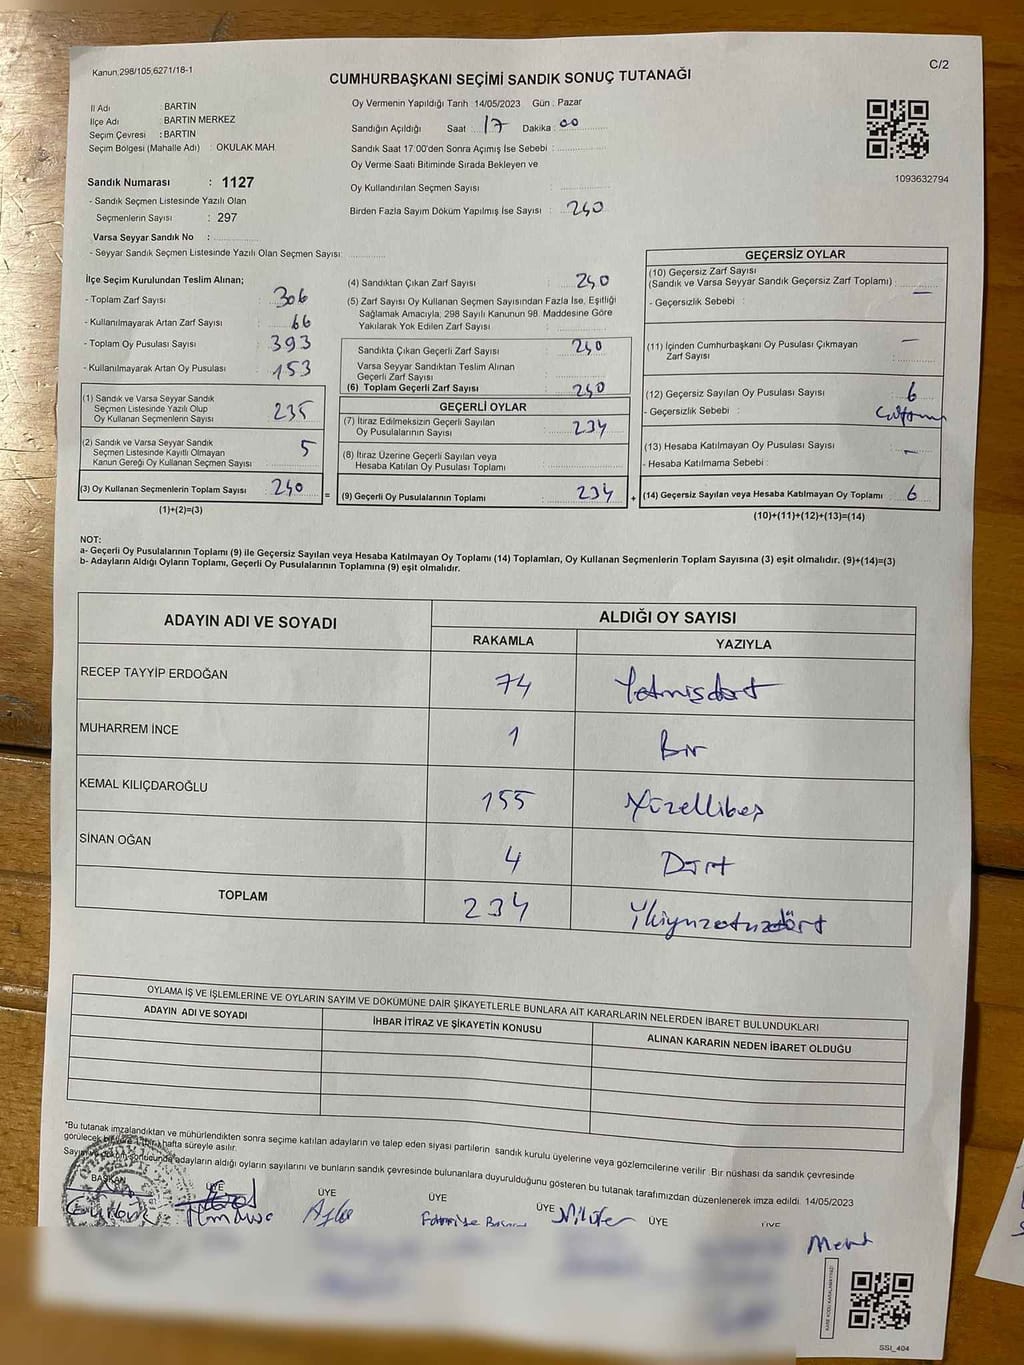 Kanun;298/105,6271/18-1
C/2
CUMHURBAŞKANI SEÇİMİ SANDIK SONUÇ TUTANAĞI
İl Adı : BARTIN
İlçe Adı : BARTIN MERKEZ
Seçim Çevresi : BARTIN
Seçim Bölgesi (Mahalle Adı) : OKULAK MAH.
Oy Vermenin Yapıldığı Tarih :14/05/2023 Gün : Pazar
Sandığın Açıldığı Saat : 17 Dakika : 00
Sandık Saat 17:00'den Sonra Açımış İse Sebebi :
Oy Verme Saati Bitiminde Sırada Bekleyen ve
Oy Kullandırılan Seçmen Sayısı :
Birden Fazla Sayım Döküm Yapılmış İse Sayısı : 240
1093632794
Sandık Numarası : 1127
- Sandık Seçmen Listesinde Yazılı Olan
Seçmenlerin Sayısı : 297
Varsa Seyyar Sandık No :
- Seyyar Sandık Seçmen Listesinde Yazılı Olan Seçmen Sayısı:
İlçe Seçim Kurulundan Teslim Alınan;
- Toplam Zarf Sayısı : 306
- Kullanılmayarak Artan Zarf Sayısı : 66
- Toplam Oy Pusulası Sayısı : 393
- Kullanılmayarak Artan Oy Pusulası : 153
(1) Sandık ve Varsa Seyyar Sandık
Seçmen Listesinde Yazılı Olup
Oy Kullanan Seçmenlerin Sayısı : 235
(2) Sandık ve Varsa Seyyar Sandık
Seçmen Listesinde Kayıtlı Olmayan
Kanun Gereği Oy Kullanan Seçmen Sayısı : 5
(3) Oy Kullanan Seçmenlerin Toplam Sayısı : 240
(1)+(2)=(3)
(4) Sandıktan Çıkan Zarf Sayısı : 240
(5) Zarf Sayısı Oy Kullanan Seçmen Sayısından Fazla İse, Eşitliği
Sağlamak Amacıyla, 298 Sayılı Kanunun 98. Maddesine Göre
Yakılarak Yok Edilen Zarf Sayısı :
Sandıkta Çıkan Geçerli Zarf Sayısı : 240
Varsa Seyyar Sandıktan Teslim Alınan
Geçerli Zarf Sayısı :
(6) Toplam Geçerli Zarf Sayısı : 240
GEÇERLİ OYLAR
(7) İtiraz Edilmeksizin Geçerli Sayılan
Oy Pusulalarının Sayısı : 234
(8) İtiraz Üzerine Geçerli Sayılan veya
Hesaba Katılan Oy Pusulası Toplamı :
= (9) Geçerli Oy Pusulalarının Toplamı : 234
GEÇERSİZ OYLAR
(10) Geçersiz Zarf Sayısı
(Sandık ve Varsa Seyyar Sandık Geçersiz Zarf Toplamı) : —
- Geçersizlik Sebebi :
(11) İçinden Cumhurbaşkanı Oy Pusulası Çıkmayan
Zarf Sayısı : —
(12) Geçersiz Sayılan Oy Pusulası Sayısı : 6
- Geçersizlik Sebebi :
(13) Hesaba Katılmayan Oy Pusulası Sayısı : —
- Hesaba Katılmama Sebebi :
+ (14) Geçersiz Sayılan veya Hesaba Katılmayan Oy Toplamı : 6
(10)+(11)+(12)+(13)=(14)
NOT:
a- Geçerli Oy Pusulalarının Toplamı (9) ile Geçersiz Sayılan veya Hesaba Katılmayan Oy Toplamı (14) Toplamları, Oy Kullanan Seçmenlerin Toplam Sayısına (3) eşit olmalıdır. (9)+(14)=(3)
b- Adayların Aldığı Oyların Toplamı, Geçerli Oy Pusulalarının Toplamına (9) eşit olmalıdır.
ADAYIN ADI VE SOYADI
ALDIĞI OY SAYISI
RAKAMLA YAZIYLA
RECEP TAYYİP ERDOĞAN 74 Yetmişdört
MUHARREM İNCE 1 Bir
KEMAL KILIÇDAROĞLU 155 Yüzellibeş
SİNAN OĞAN 4 Dört
TOPLAM 234 İkiyüzotuzdört
OYLAMA İŞ VE İŞLEMLERİNE VE OYLARIN SAYIM VE DÖKÜMÜNE DAİR ŞİKAYETLERLE BUNLARA AİT KARARLARIN NELERDEN İBARET BULUNDUKLARI
ADAYIN ADI VE SOYADI İHBAR İTİRAZ VE ŞİKAYETİN KONUSU ALINAN KARARIN NEDEN İBARET OLDUĞU
*Bu tutanak imzalandıktan ve mühürlendikten sonra seçime katılan adayların ve talep eden siyasi partilerin sandık kurulu üyelerine veya gözlemcilerine verilir. Bir nüshası da sandık çevresinde
görülecek bir yere 1 hafta süreyle asılır.
Sayım ve döküm sonucunda adayların aldığı oyların sayılarını ve bunların sandık çevresinde bulunanlara duyurulduğunu gösteren bu tutanak tarafımızdan düzenlenerek imza edildi. 14/05/2023
BAŞKAN ÜYE ÜYE ÜYE ÜYE ÜYE ÜYE
Nilüfer
Mert
KARE KODU KARALAMAYINIZ!
SSI_404